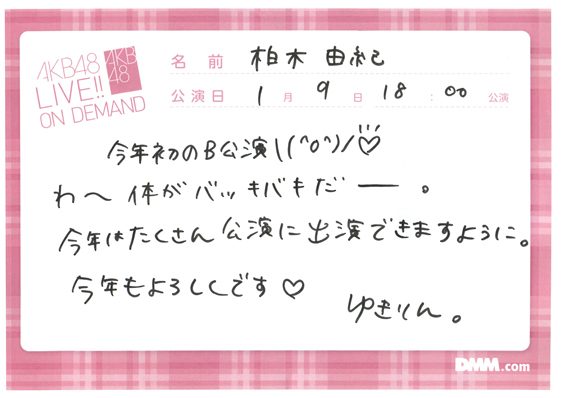 AKB48
LIVE!!
ON DEMAND
AKB
48
名前 柏木 由紀
公演日 1月 9日 18:00 公演
今年初のB公演\(^o^)/♡
わ〜 体がバッキバキだー 。
今年はたくさん公演に出演できますように。
今年もよろしくです♡
ゆきりん。
DMM.com